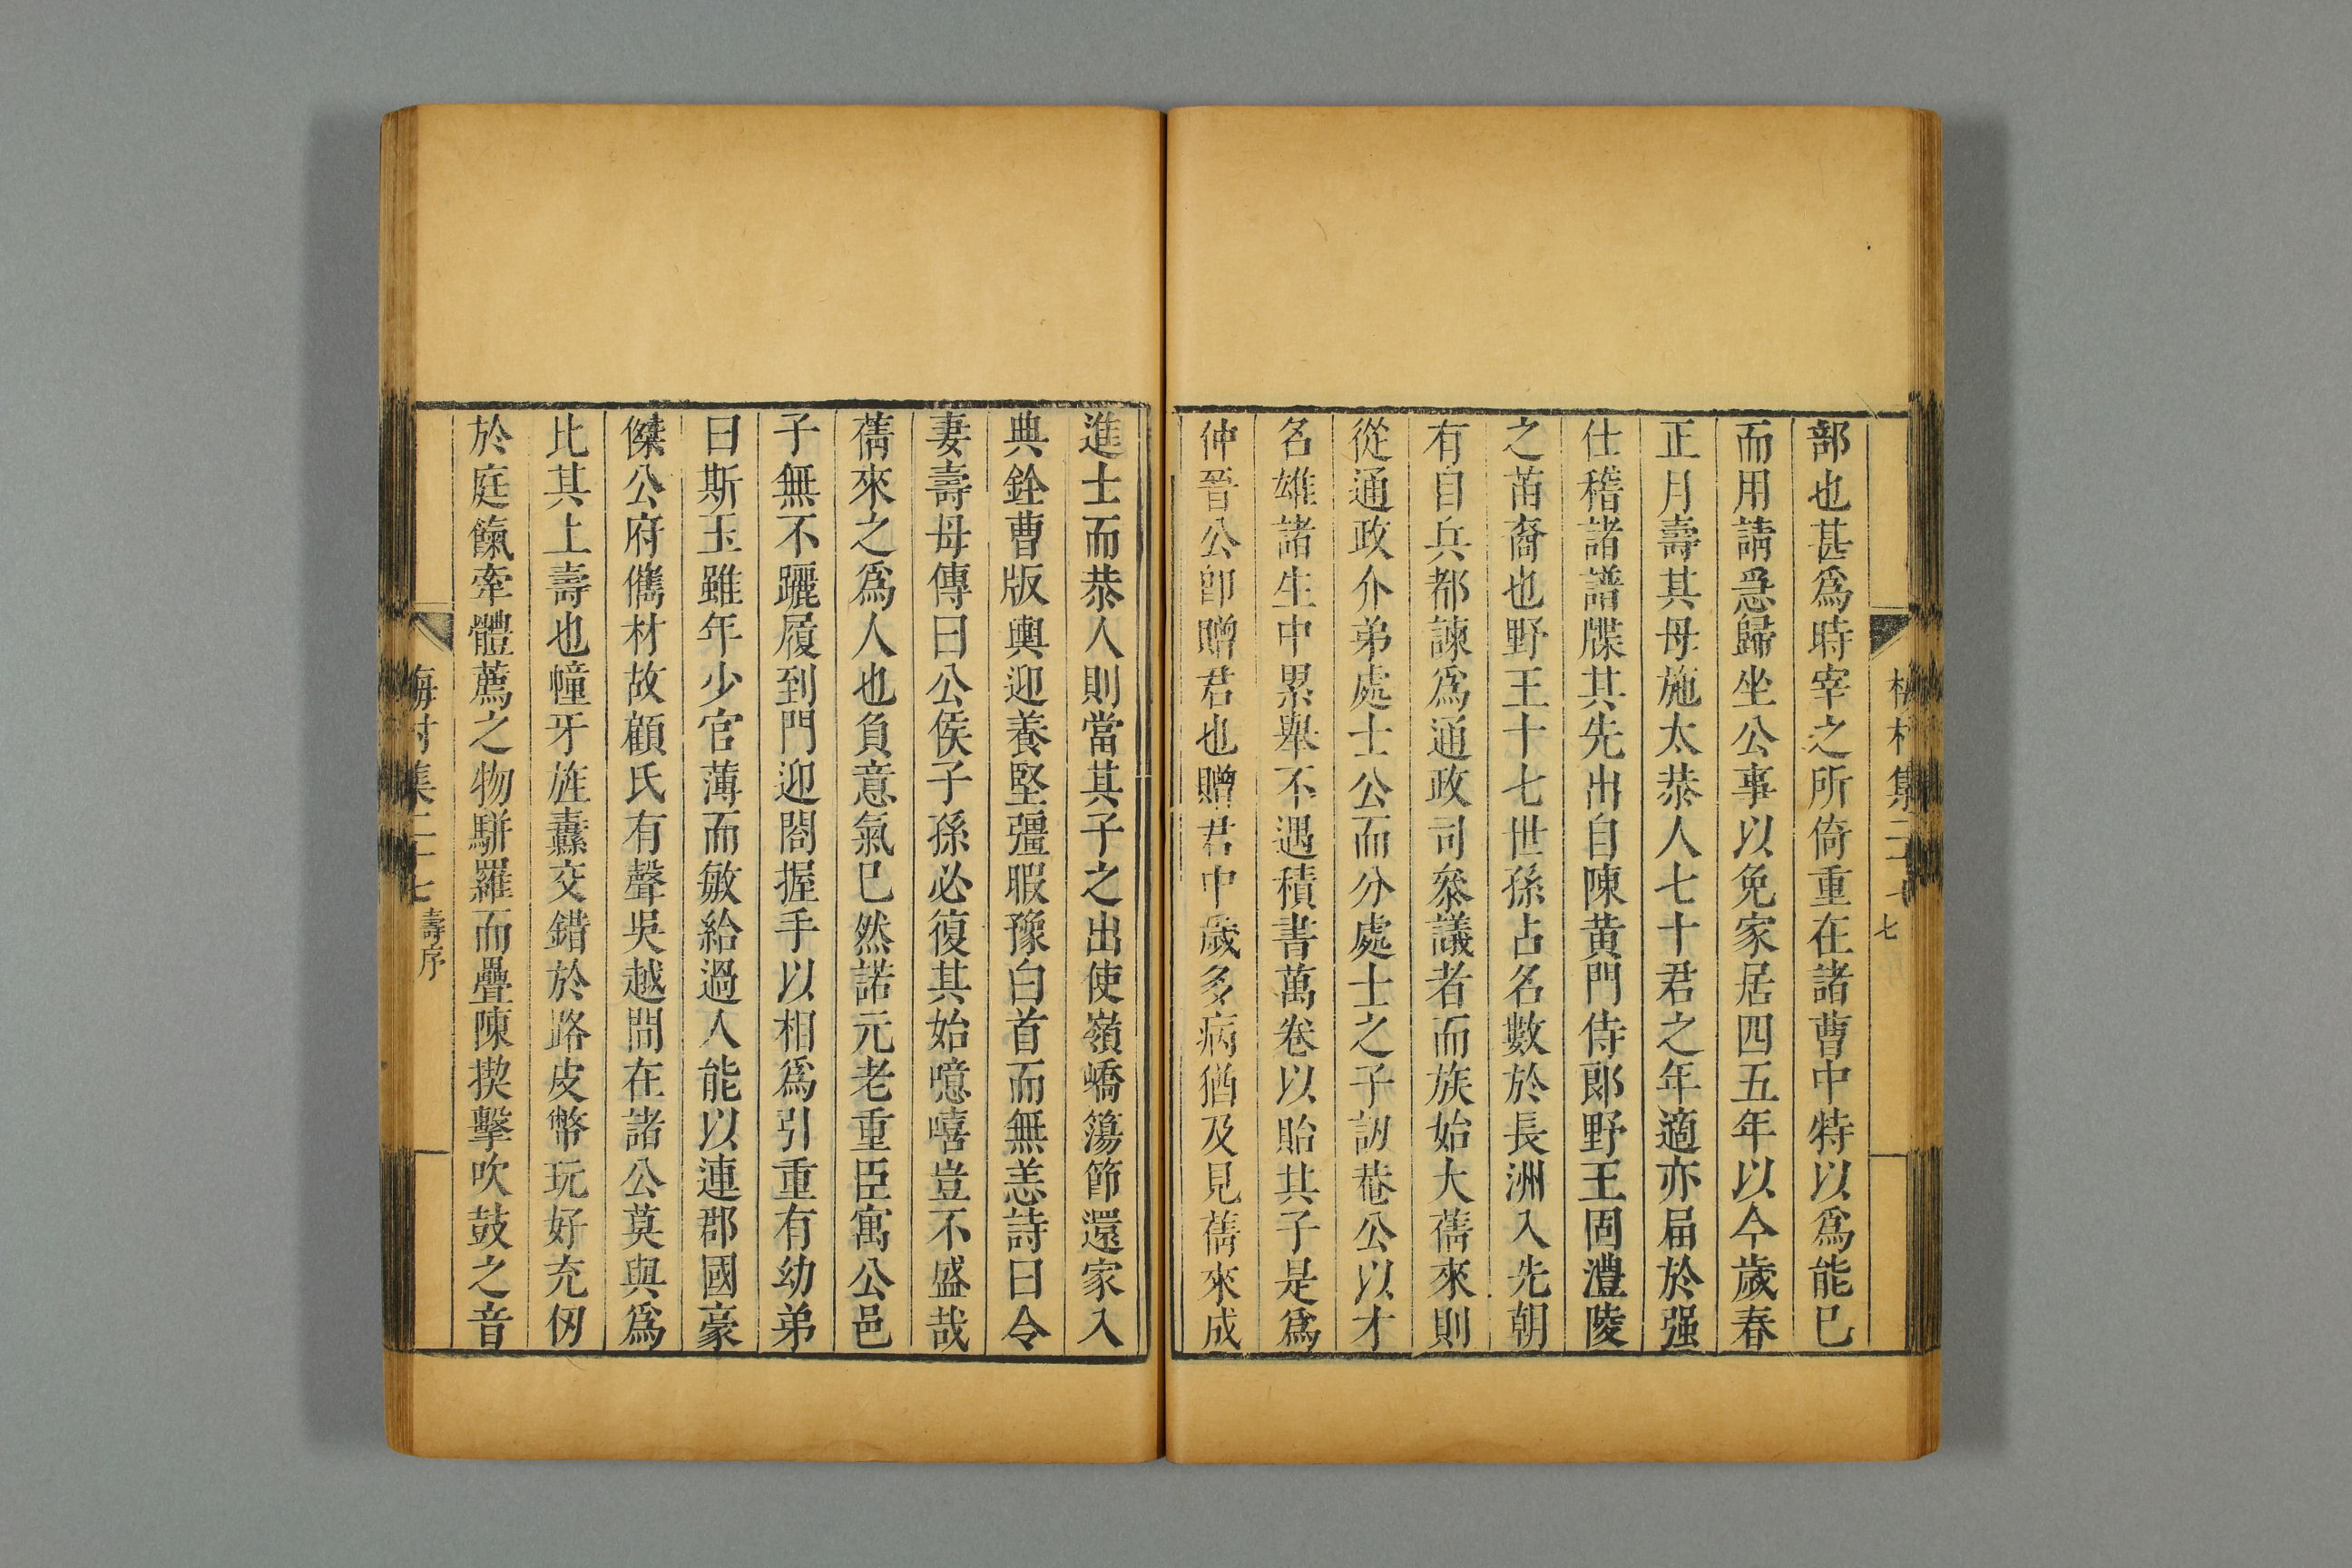 部也甚爲時宰之所倚重在諸曹中特以爲能已
而用請急歸坐公事以免家居四五年以今歲春
正月壽其母施太恭人七十君之年適亦屆於强
仕稽諸譜牒其先出自陳黃門侍郎野王固澧陵
之苗裔也野王十七世孫占名數於長洲入先朝
有自兵都諫爲通政司叅議者而族始大蒨來則
從通政介弟處士公而分處士之子訒菴公以才
名雄諸生中累舉不遇積書萬卷以貽其子是爲
仲晉公卽贈君也贈君中歲多病猶及見蒨來成
進士而恭人則當其子之出使嶺嶠簜節還家入
典銓曹版輿迎養堅彊暇豫白首而無恙詩曰令
妻壽母傳曰公侯子孫必復其始噫嘻豈不盛哉
蒨來之爲人也負意氣已然諾元老重臣寓公邑
子無不躧履到門迎閤握手以相爲引重有幼弟
曰斯玉雖年少官薄而敏給過人能以連郡國豪
傑公府儁材故顧氏有聲吳越間在諸公莫與爲
比其上壽也幢牙旌纛交錯於路皮幣玩好充仞
於庭餼牽體薦之物駢羅而疊陳摐擊吹鼓之音
梅村集二十七 壽序
七